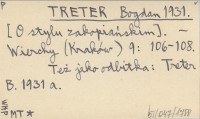 P
TRETER Bogdan 1931.
[O stylu zakopiańskim]. -
Wierchy (Kraków) 9: 106-108.
Też jako odbitka: Treter
B. 1931 a.
MT*